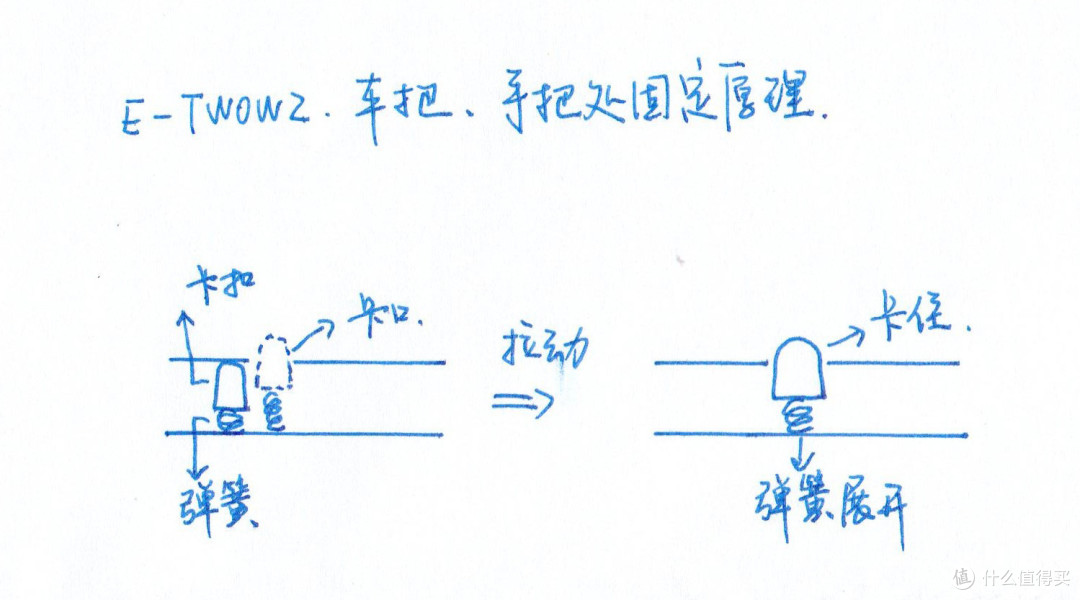 E-TWOW2.车把、手把处固定原理.
卡扣
卡口.
拉动
卡住.
弹簧
弹簧展开
值 什么值得买